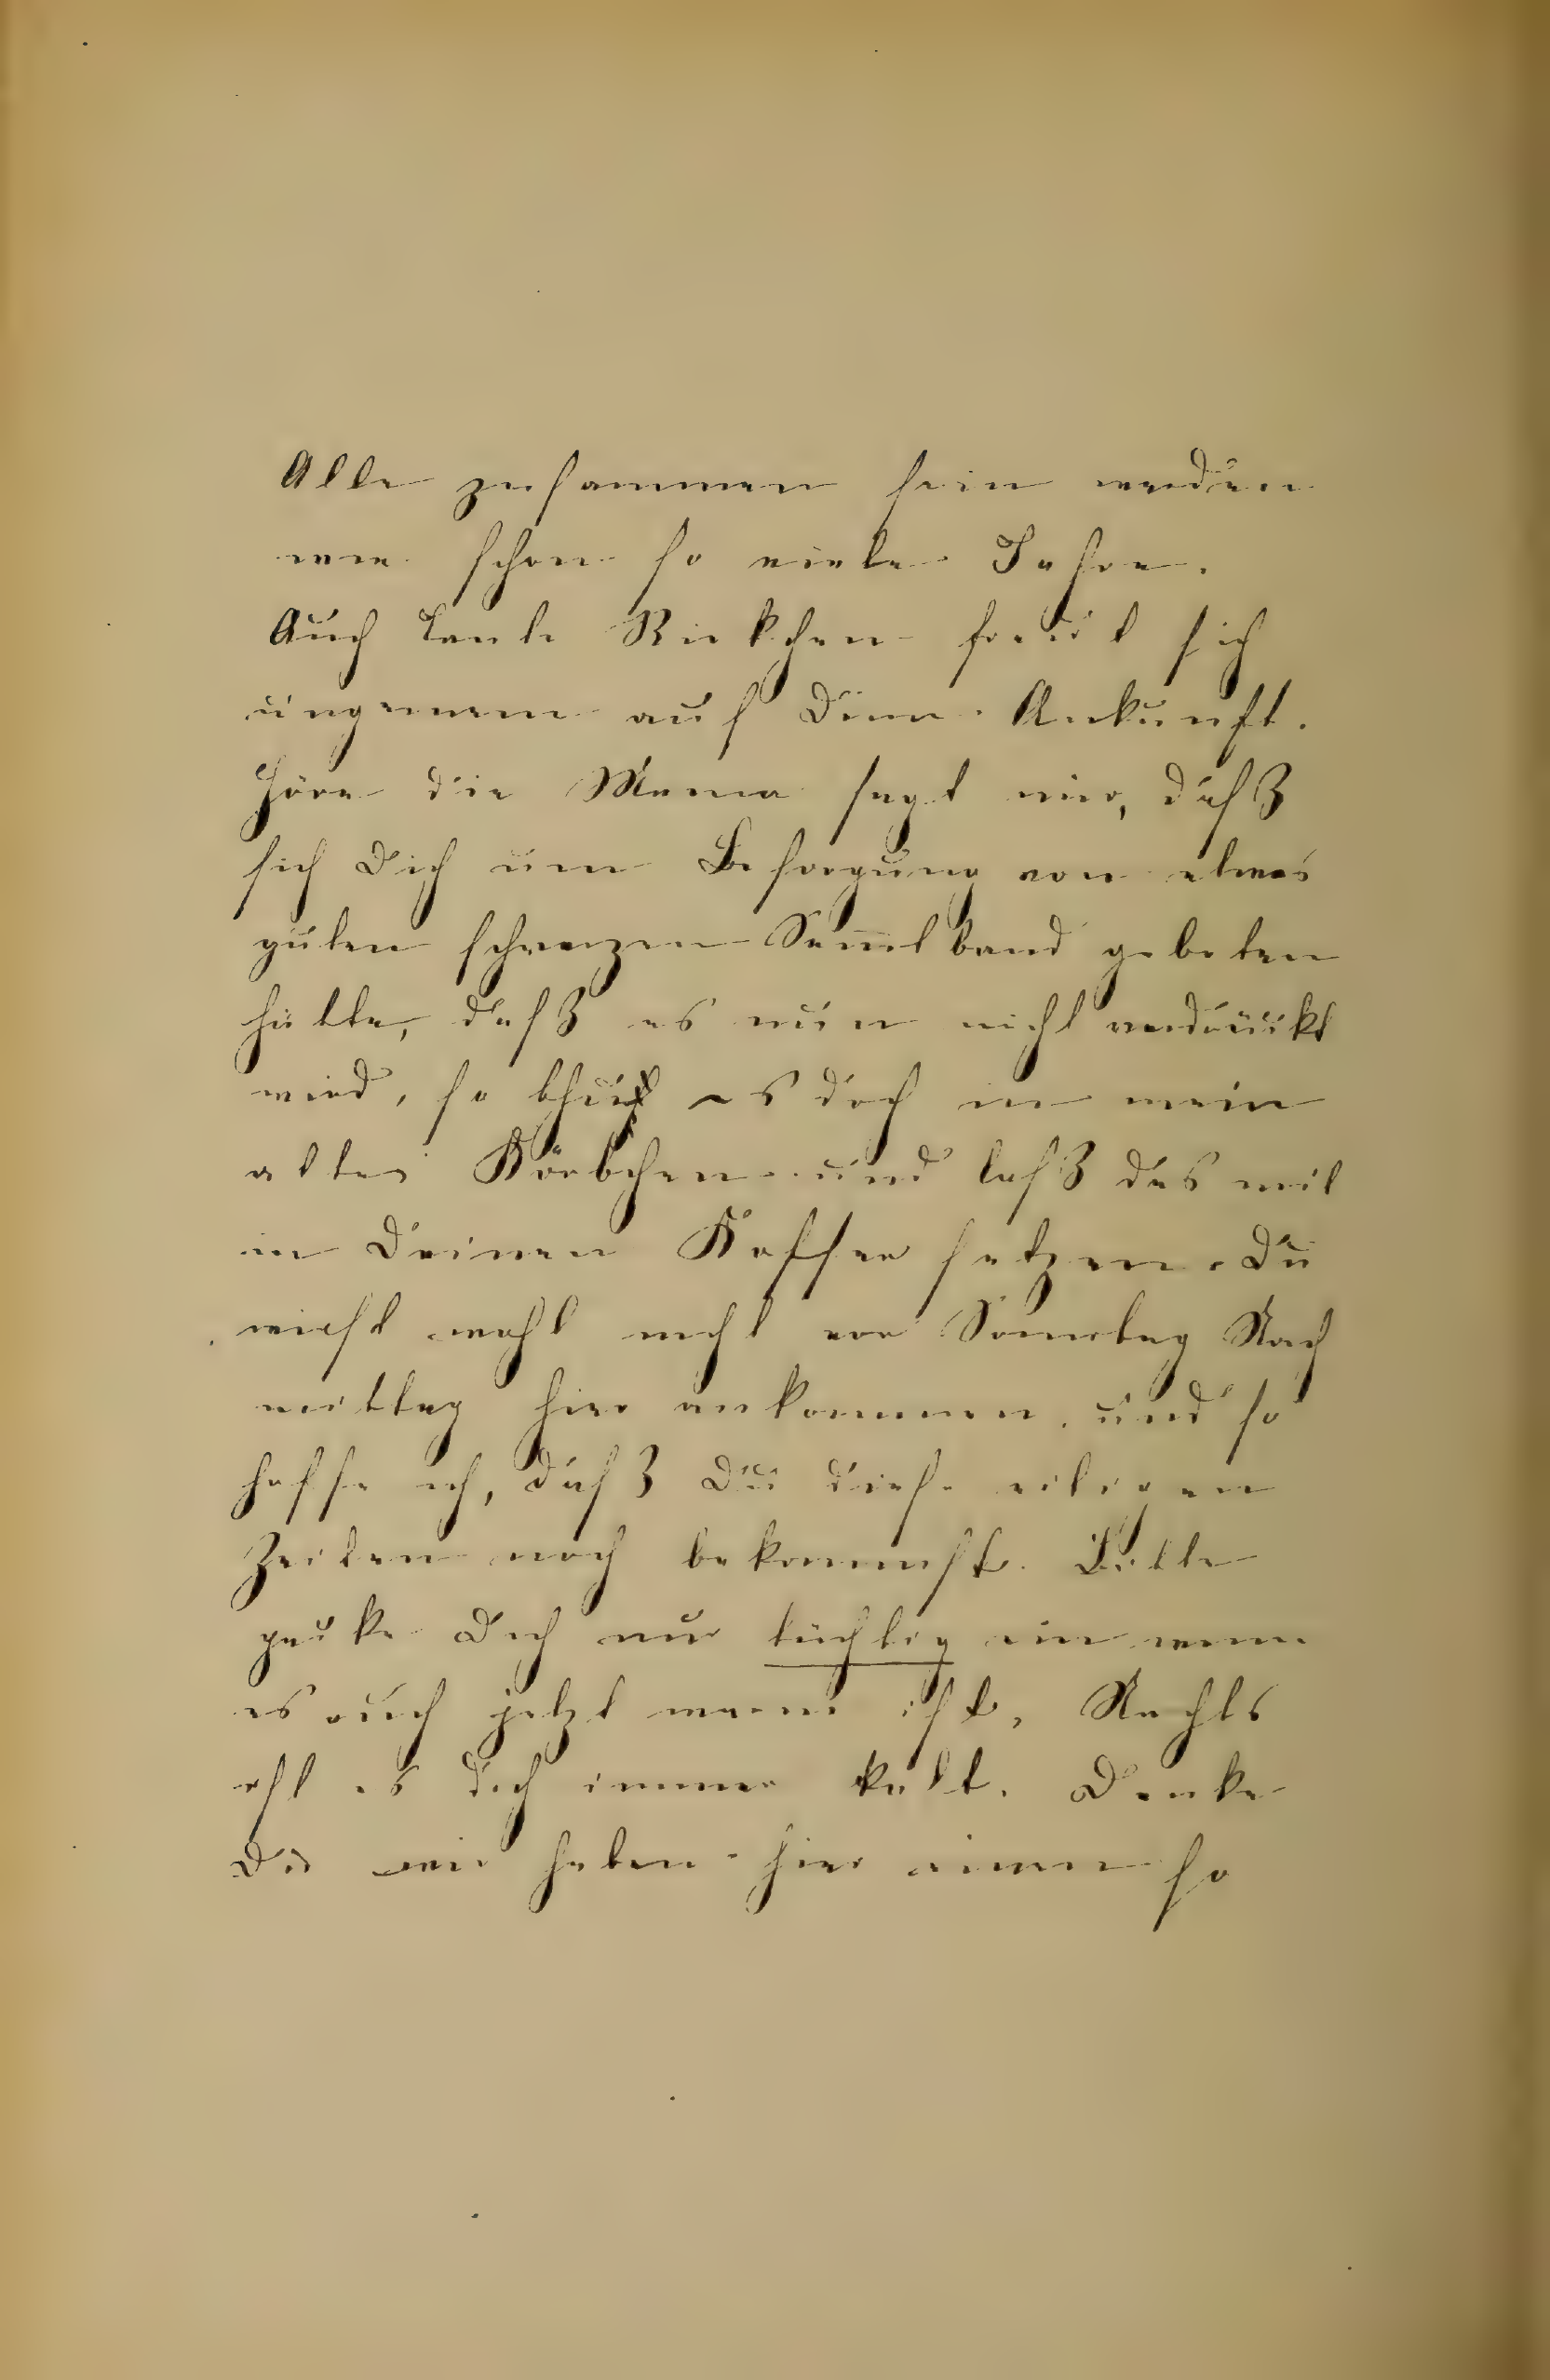 Alle zusammen sein werden
wie schon so viele Jahre.
Auch Tante Riekchen freut sich
ungemein auf Deine Ankunft.
Höre die Mama sagt mir, daß
sich Dich um Besorgung von etwas
guten schwarzen Samtband gebeten
hätte, daß es nun nicht verdrückt
wird, so thu es doch in mein
altes Körbchen und laß das mit
in Deinen Koffer setzen. Du
wirst wohl nicht vor Sonntag Nach
mittag hier ankommen, und so
hoffe ich, daß Du diese eiligen
Zeilen noch bekommst. Bitte
packe Dich nur tüchtig ein wenn
es auch jetzt warm ist, Nachts
ist es doch immer kalt. Denke
Dir wir haben hier einen so